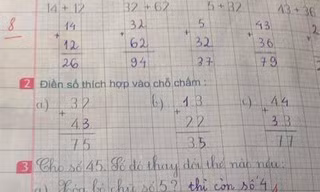 14 + 12 32 + 62 5 + 32 43 + 36
8
14 32 5 43
+ + + +
12 62 32 36
26 94 37 79
2 Điền số thích hợp vào chỗ chấm :
a) 32 b) 13 c) 44
+ + +
43 22 33
75 35 77
3 Cho số 45. Số đó thay đổi thế nào nếu:
a) Xóa bỏ chữ số 5? thì còn số 4